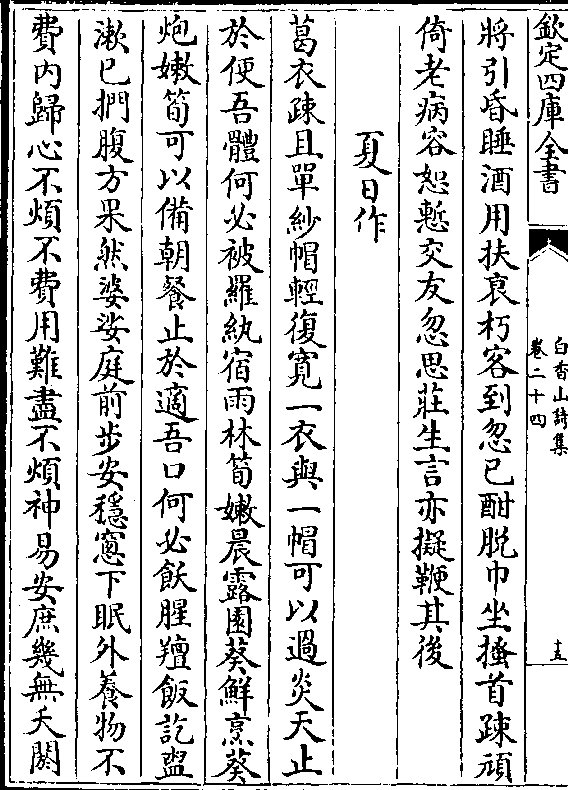 欽定四庫全書
白香山詩集
卷二十四
十五
將引昏睡酒用扶衰朽客到忽已酣脱巾坐搔首疎頑
倚老病容恕慙交友忽思莊生言亦擬鞭其後
夏日作
葛衣疎且單紗帽輕復寛一衣與一帽可以過炎天止
於便吾體何必被羅紈宿雨林筍嫩晨露園葵鮮烹葵
炮嫩筍可以備朝餐止於適吾口何必飫腥羶飯訖盥
漱已捫腹方果然婆娑庭前步安穩窻下眠外養物不
費内歸心不煩不費用難盡不煩神易安庶幾無夭閼